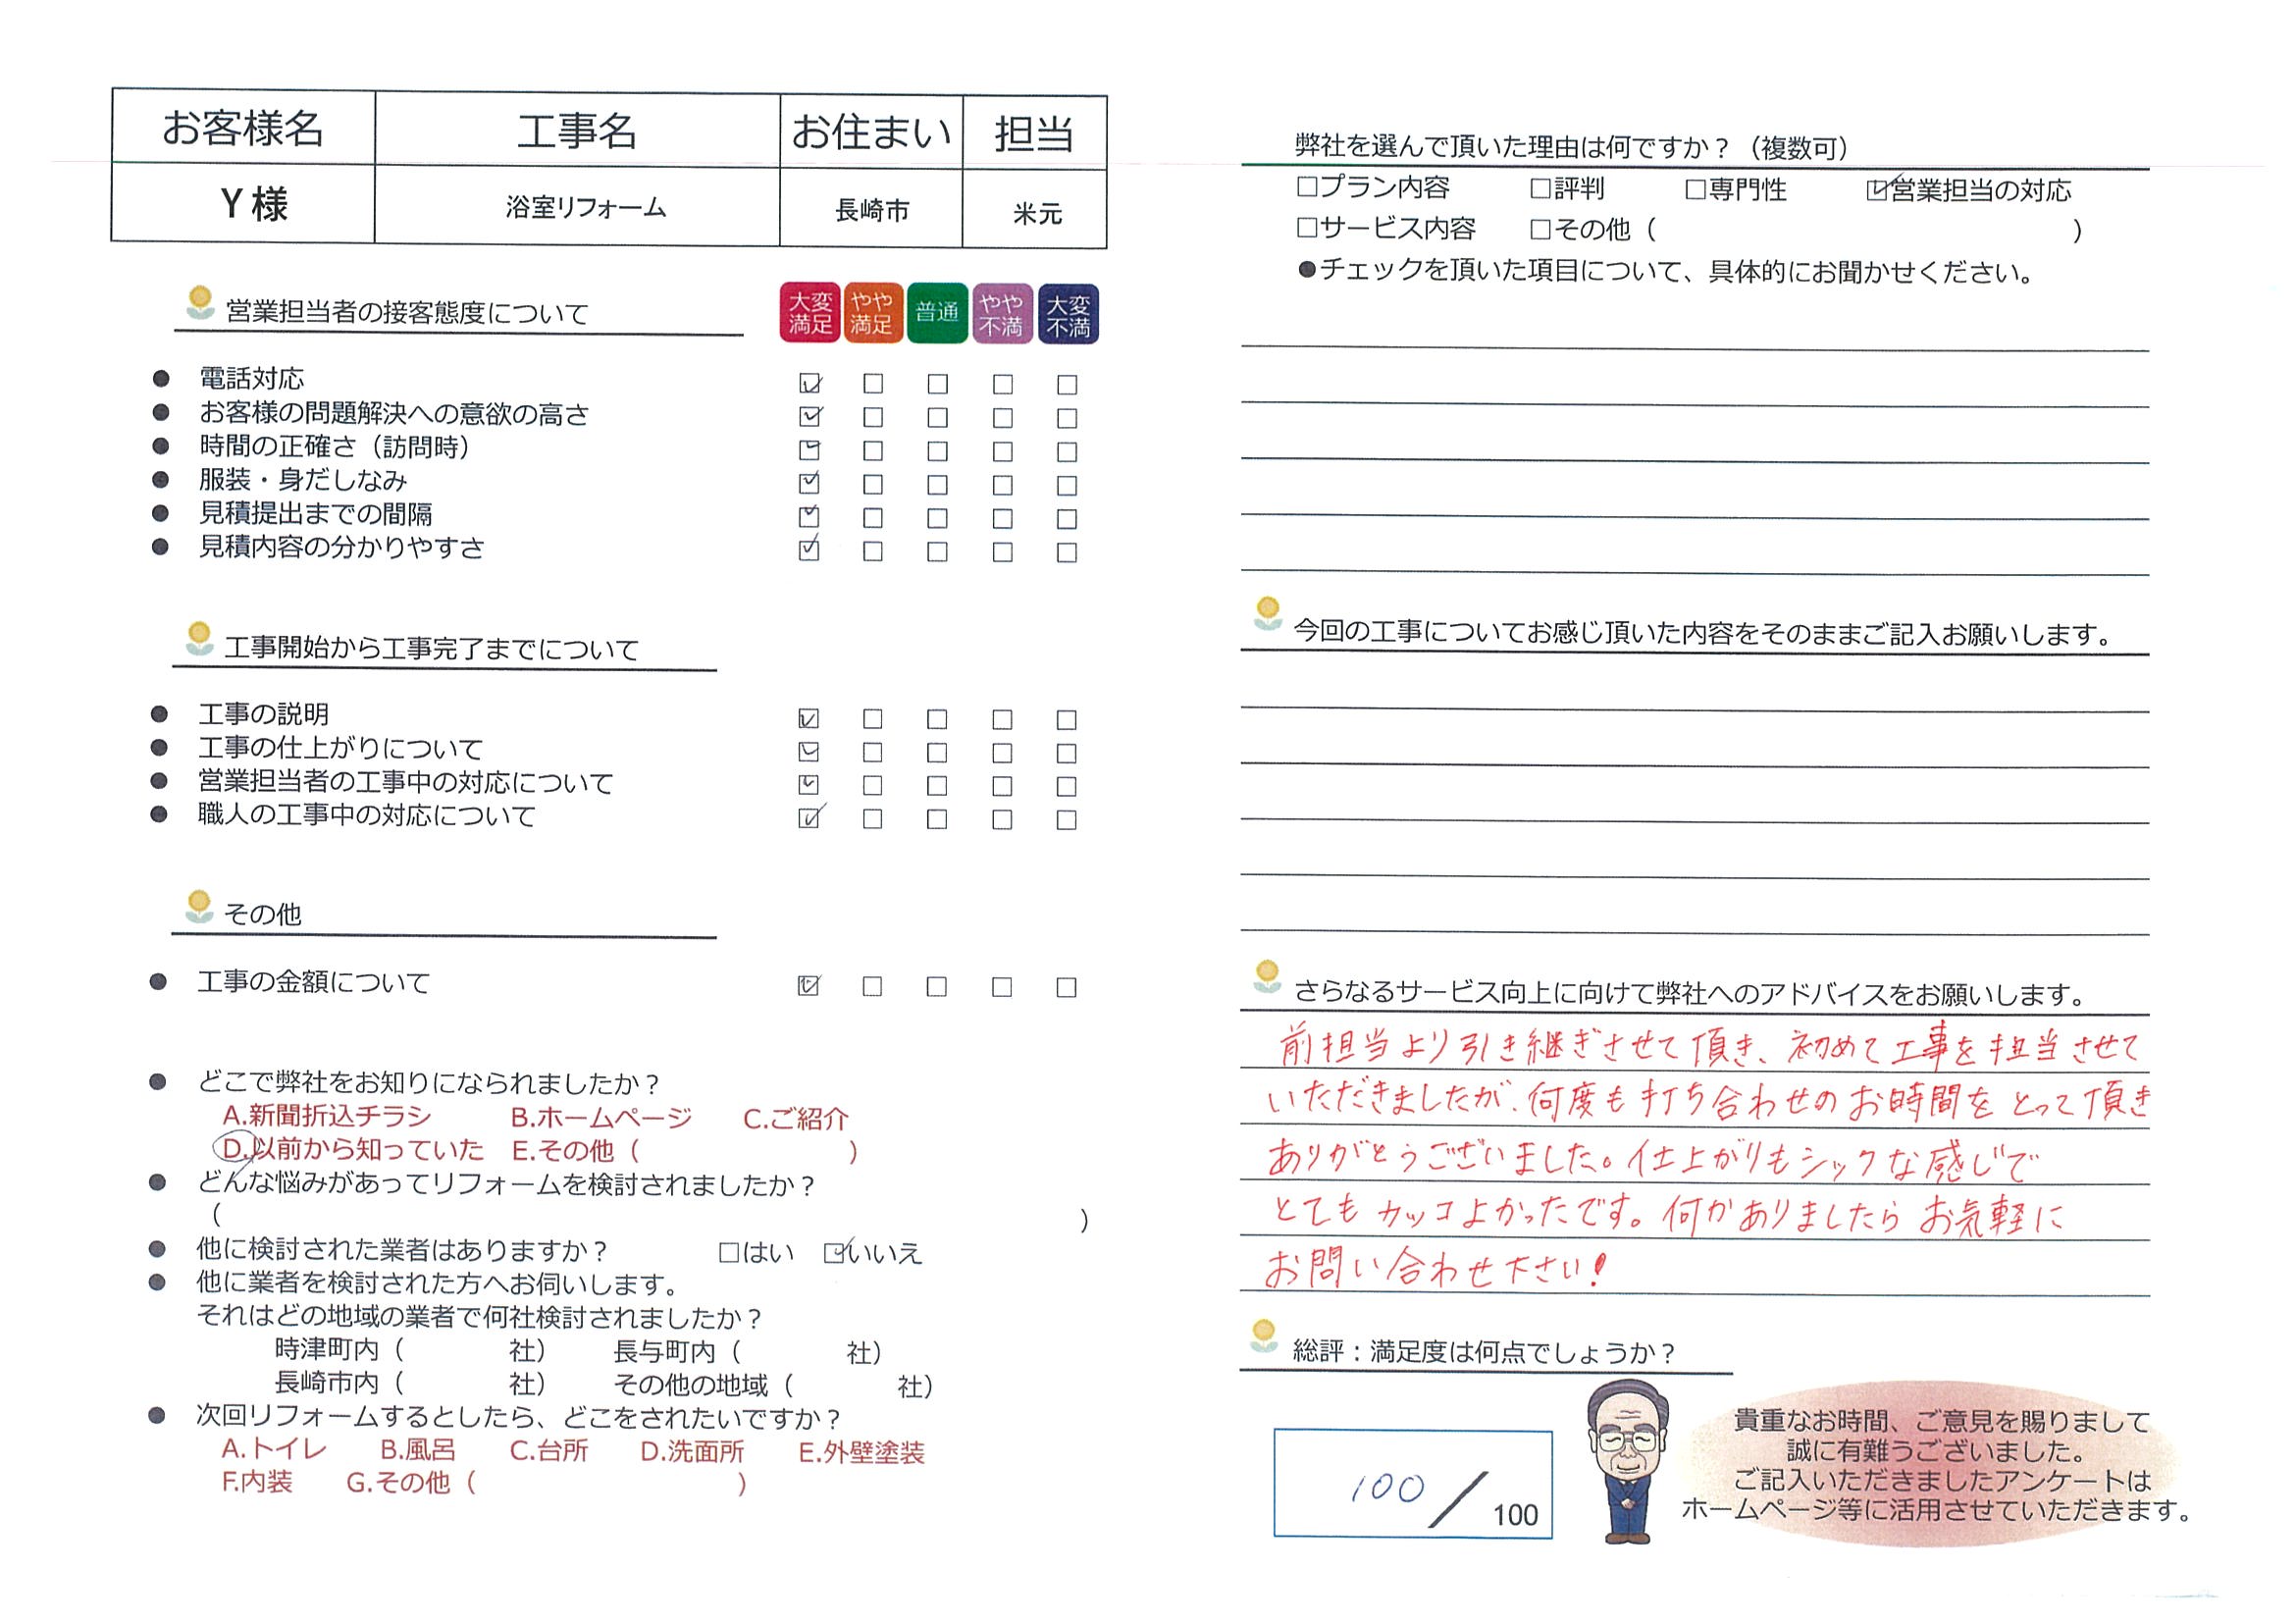 お客様名 工事名 お住まい 担当
Y様 浴室リフォーム 長崎市 米元
営業担当者の接客態度について
大変満足 やや満足 普通 やや不満 大変不満
● 電話対応 ☑ □ □ □ □
● お客様の問題解決への意欲の高さ ☑ □ □ □ □
● 時間の正確さ（訪問時） ☑ □ □ □ □
● 服装・身だしなみ ☑ □ □ □ □
● 見積提出までの間隔 ☑ □ □ □ □
● 見積内容の分かりやすさ ☑ □ □ □ □
工事開始から工事完了までについて
● 工事の説明 ☑ □ □ □ □
● 工事の仕上がりについて ☑ □ □ □ □
● 営業担当者の工事中の対応について ☑ □ □ □ □
● 職人の工事中の対応について ☑ □ □ □ □
その他
● 工事の金額について ☑ □ □ □ □
● どこで弊社をお知りになられましたか？
A.新聞折込チラシ B.ホームページ C.ご紹介
D.以前から知っていた E.その他（ ）
● どんな悩みがあってリフォームを検討されましたか？
（ ）
● 他に検討された業者はありますか？ □はい ☑いいえ
● 他に業者を検討された方へお伺いします。
それはどの地域の業者で何社検討されましたか？
時津町内（ 社） 長与町内（ 社）
長崎市内（ 社） その他の地域（ 社）
● 次回リフォームするとしたら、どこをされたいですか？
A.トイレ B.風呂 C.台所 D.洗面所 E.外壁塗装
F.内装 G.その他（ ）
弊社を選んで頂いた理由は何ですか？（複数可）
□プラン内容 □評判 □専門性 ☑営業担当の対応
□サービス内容 □その他（ ）
●チェックを頂いた項目について、具体的にお聞かせください。
今回の工事についてお感じ頂いた内容をそのままご記入お願いします。
さらなるサービス向上に向けて弊社へのアドバイスをお願いします。
前担当より引き継ぎさせて頂き、初めて工事を担当させて
いただきましたが、何度も打ち合わせのお時間をとって頂き
ありがとうございました。仕上がりもシックな感じで
とてもカッコよかったです。何かありましたらお気軽に
お問い合わせ下さい！
総評：満足度は何点でしょうか？
100 / 100
貴重なお時間、ご意見を賜りまして
誠に有難うございました。
ご記入いただきましたアンケートは
ホームページ等に活用させていただきます。